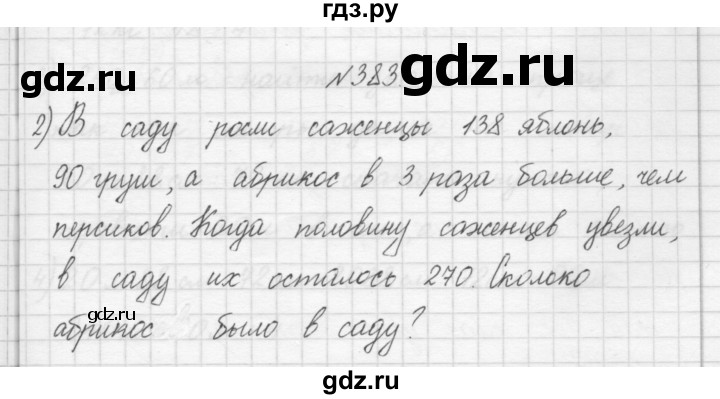 гдз.ру
gdz.ru
№383.
gdz.ru
2) В саду росли саженцы 138 яблонь,
90 груш, а абрикос в 3 раза больше, чем
персиков. Когда половину саженцев увезли,
в саду их осталось 270. Сколько
gdz.ru
gdz.ru
абрикос было в саду?
gdz.ru